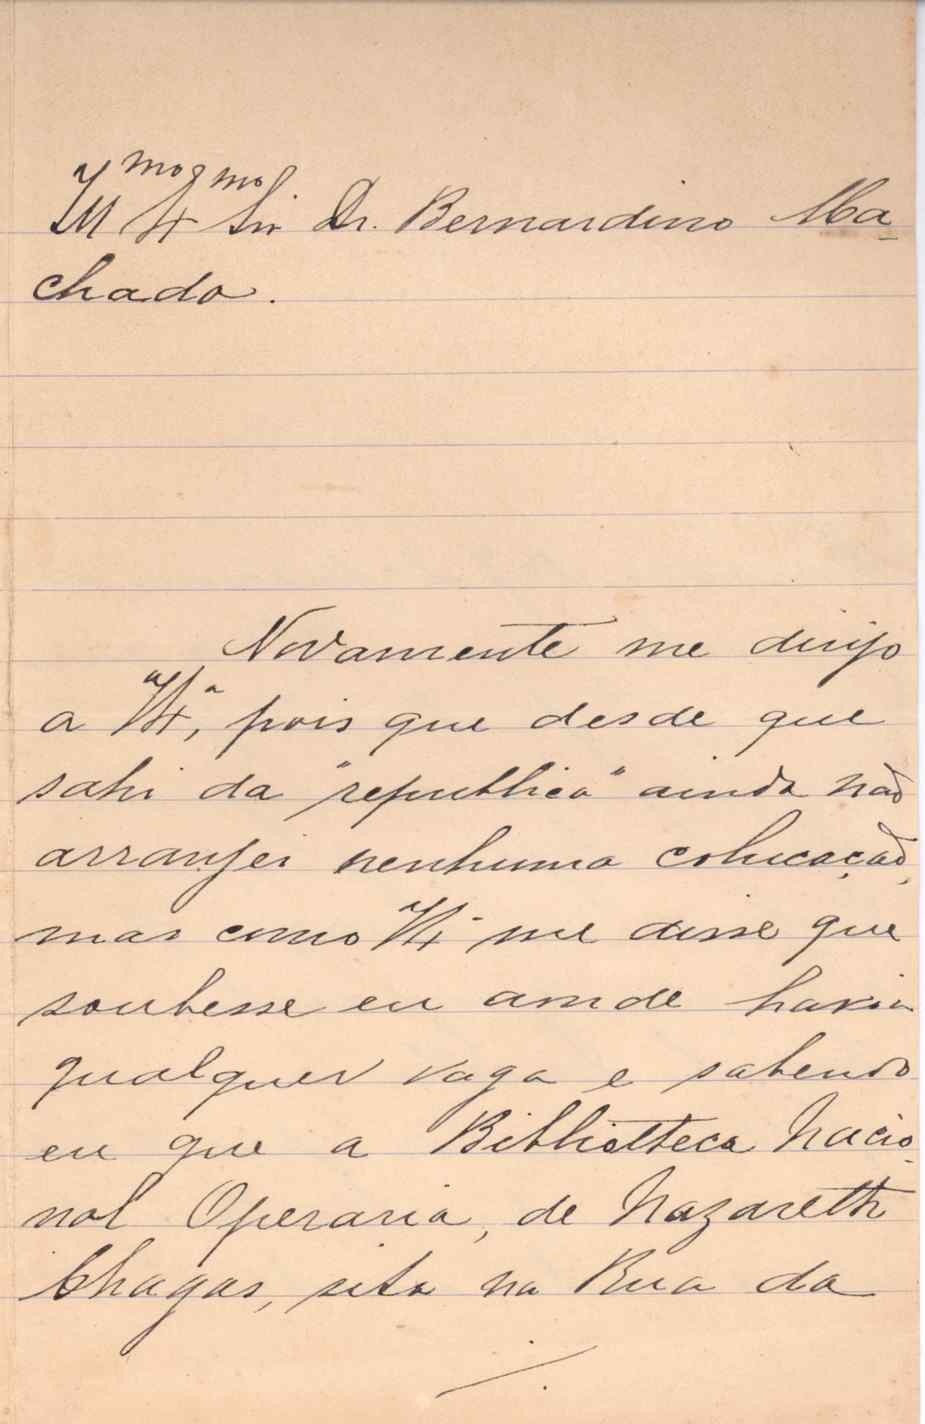 Ill.mo Ex.mo Snr Dr. Bernardino Ma-
chado.
Novamente me dirijo
a V. Ex.ª, pois que desde que
sahi da "republica" ainda não
arranjei nenhuma colucação,
mas como V. Ex.ª me disse que
soubesse eu aonde havia
qualquer vaga e sabendo
eu que a Bibliotteca Nacio-
nal Operaria, de Nazareth
Chagas, sita na Rua da